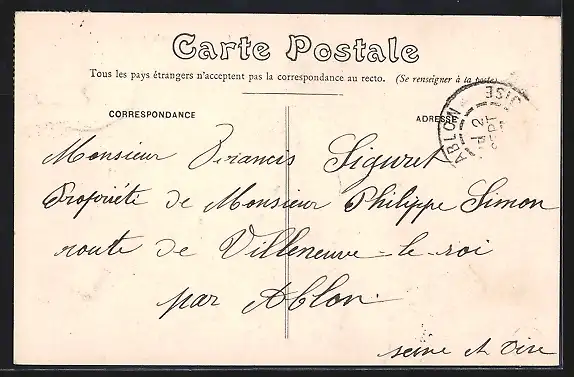 Carte Postale
Tous les pays étrangers n'acceptent pas la correspondance au recto. (Se renseigner à la poste)
CORRESPONDANCE
ADRESSE
ABLON
OISE
Monsieur Francis Siguret
Propriété de Monsieur Philippe Simon
route de Villeneuve-le-roi
par Ablon.
seine et Oise